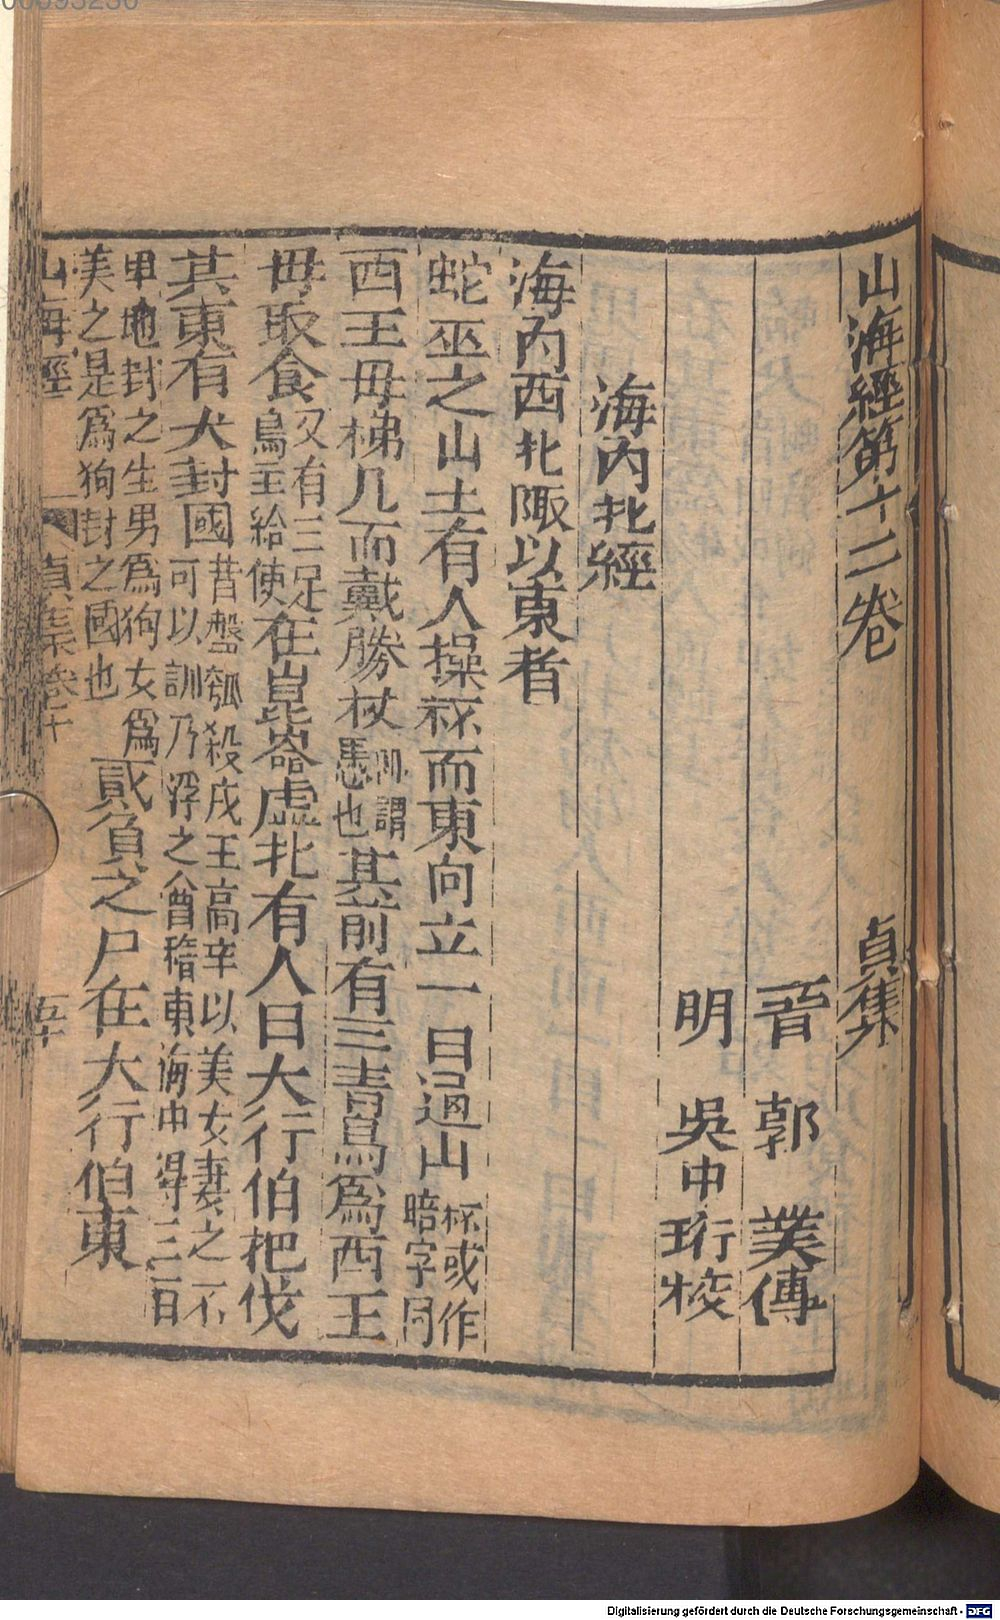 00093236
山海經第十二卷 貞集
晉 郭 璞傳
明 吳中珩校
海內北經
海內西北陬以東者
蛇巫之山上有人操柸而東向立一曰過山柸或作
㮄字同
西王毋梯几而戴勝杖謂
慿也其前有三青鳥爲西王
毋取食又有三足
鳥主給使在崑崙虛北有人曰大行伯把戈
其東有犬封國昔盤瓠殺戎王高辛以美女妻之不
可以訓乃浮之會稽東海中得三百
里地封之生男爲狗女爲
美之是爲狗封之國也貳負之尸在大行伯東
山海經 貞集卷十 五十
Digitalisierung gefördert durch die Deutsche Forschungsgemeinschaft - DFG